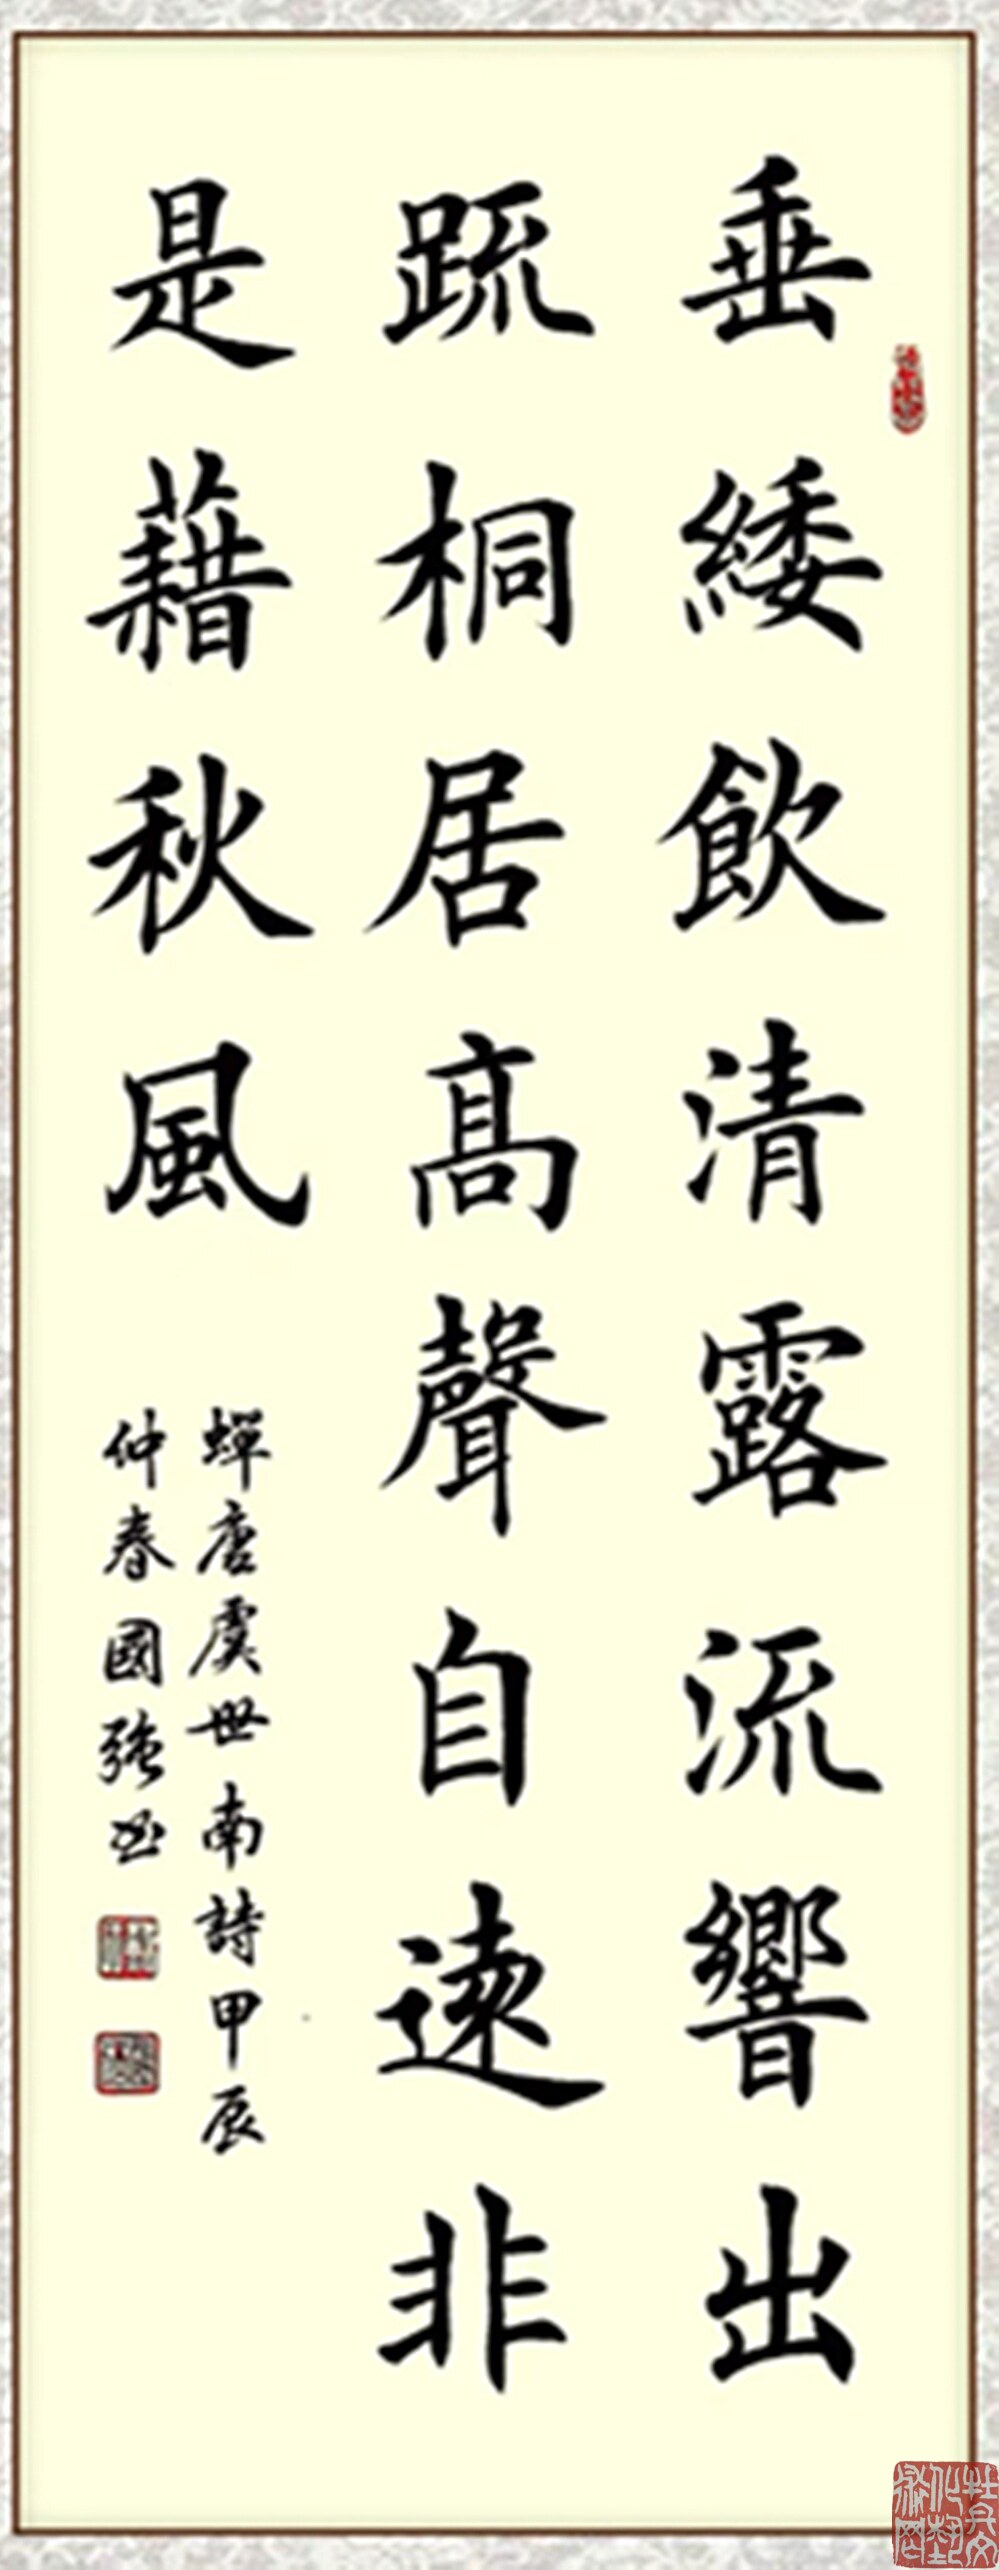 垂緌飲清露流響出
疏桐居高聲自遠非
是藉秋風
蟬唐虞世南詩甲辰
仲春國強書